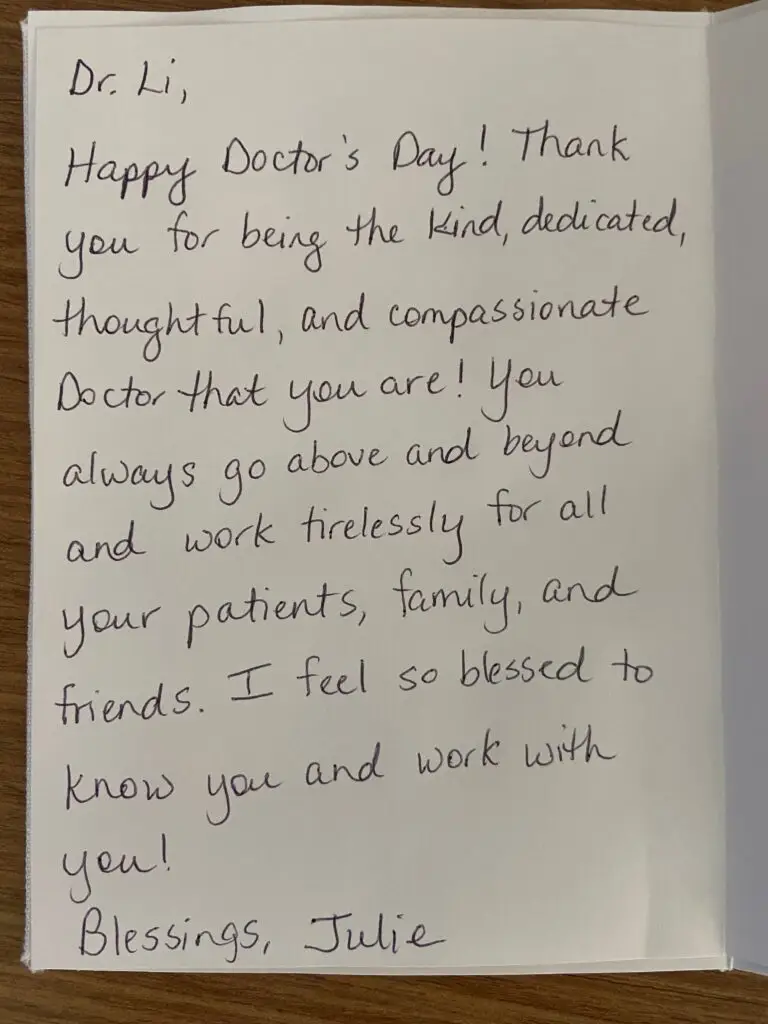 Dr. Li,
Happy Doctor's Day! Thank
you for being the kind, dedicated,
thoughtful, and compassionate
Doctor that you are! You
always go above and beyond
and work tirelessly for all
your patients, family, and
friends. I feel so blessed to
know you and work with
you!
Blessings, Julie